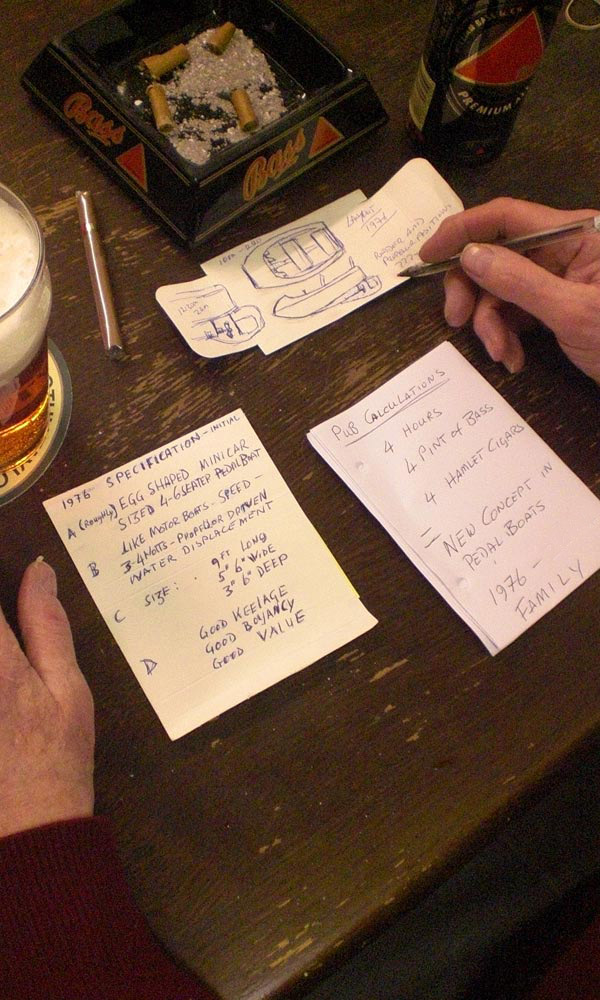 Bass
Bass
PREMIUM
LAYOUT
1976
RUDDER AND
PROPELLOR POSITIONS
1976 SPECIFICATION - INITIAL
A (Roughly) EGG SHAPED MINICAR
SIZED 4-6 SEATER PEDAL BOAT
B LIKE MOTOR BOATS - SPEED -
3-4 KNOTS - PROPELLOR DRIVEN
WATER DISPLACEMENT
C SIZE: 9FT LONG
5" 6" WIDE
3" 6" DEEP
D GOOD KEELAGE
GOOD BOYANCY
GOOD VALUE
PUB CALCULATIONS
4 HOURS
4 PINT OF BASS
4 HAMLET CIGARS
= NEW CONCEPT IN
PEDAL BOATS
1976 -
FAMILY